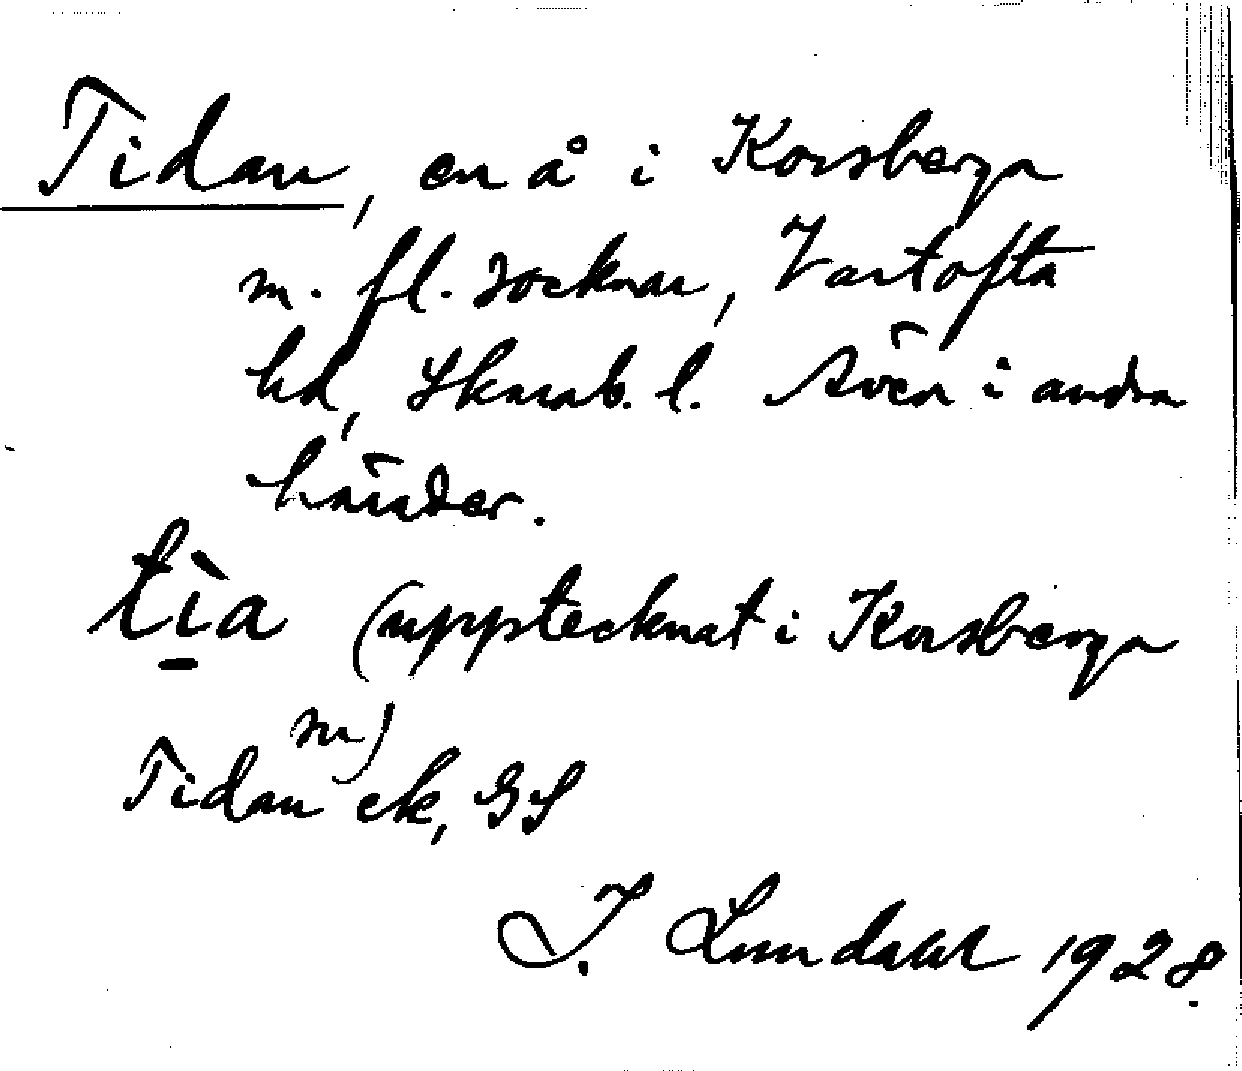 Tidan, en å i Korsberga
m. fl. socknar, Vartofta
hd, Skarab. l. Även i andra
härader.
tìa (upptecknat i Korsberga
sn)
Tidan ek, GS
I. Lundahl 1928.